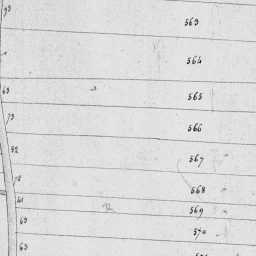 93
563
564
63
565
73
566
52
567
568
41
569
63
570
63